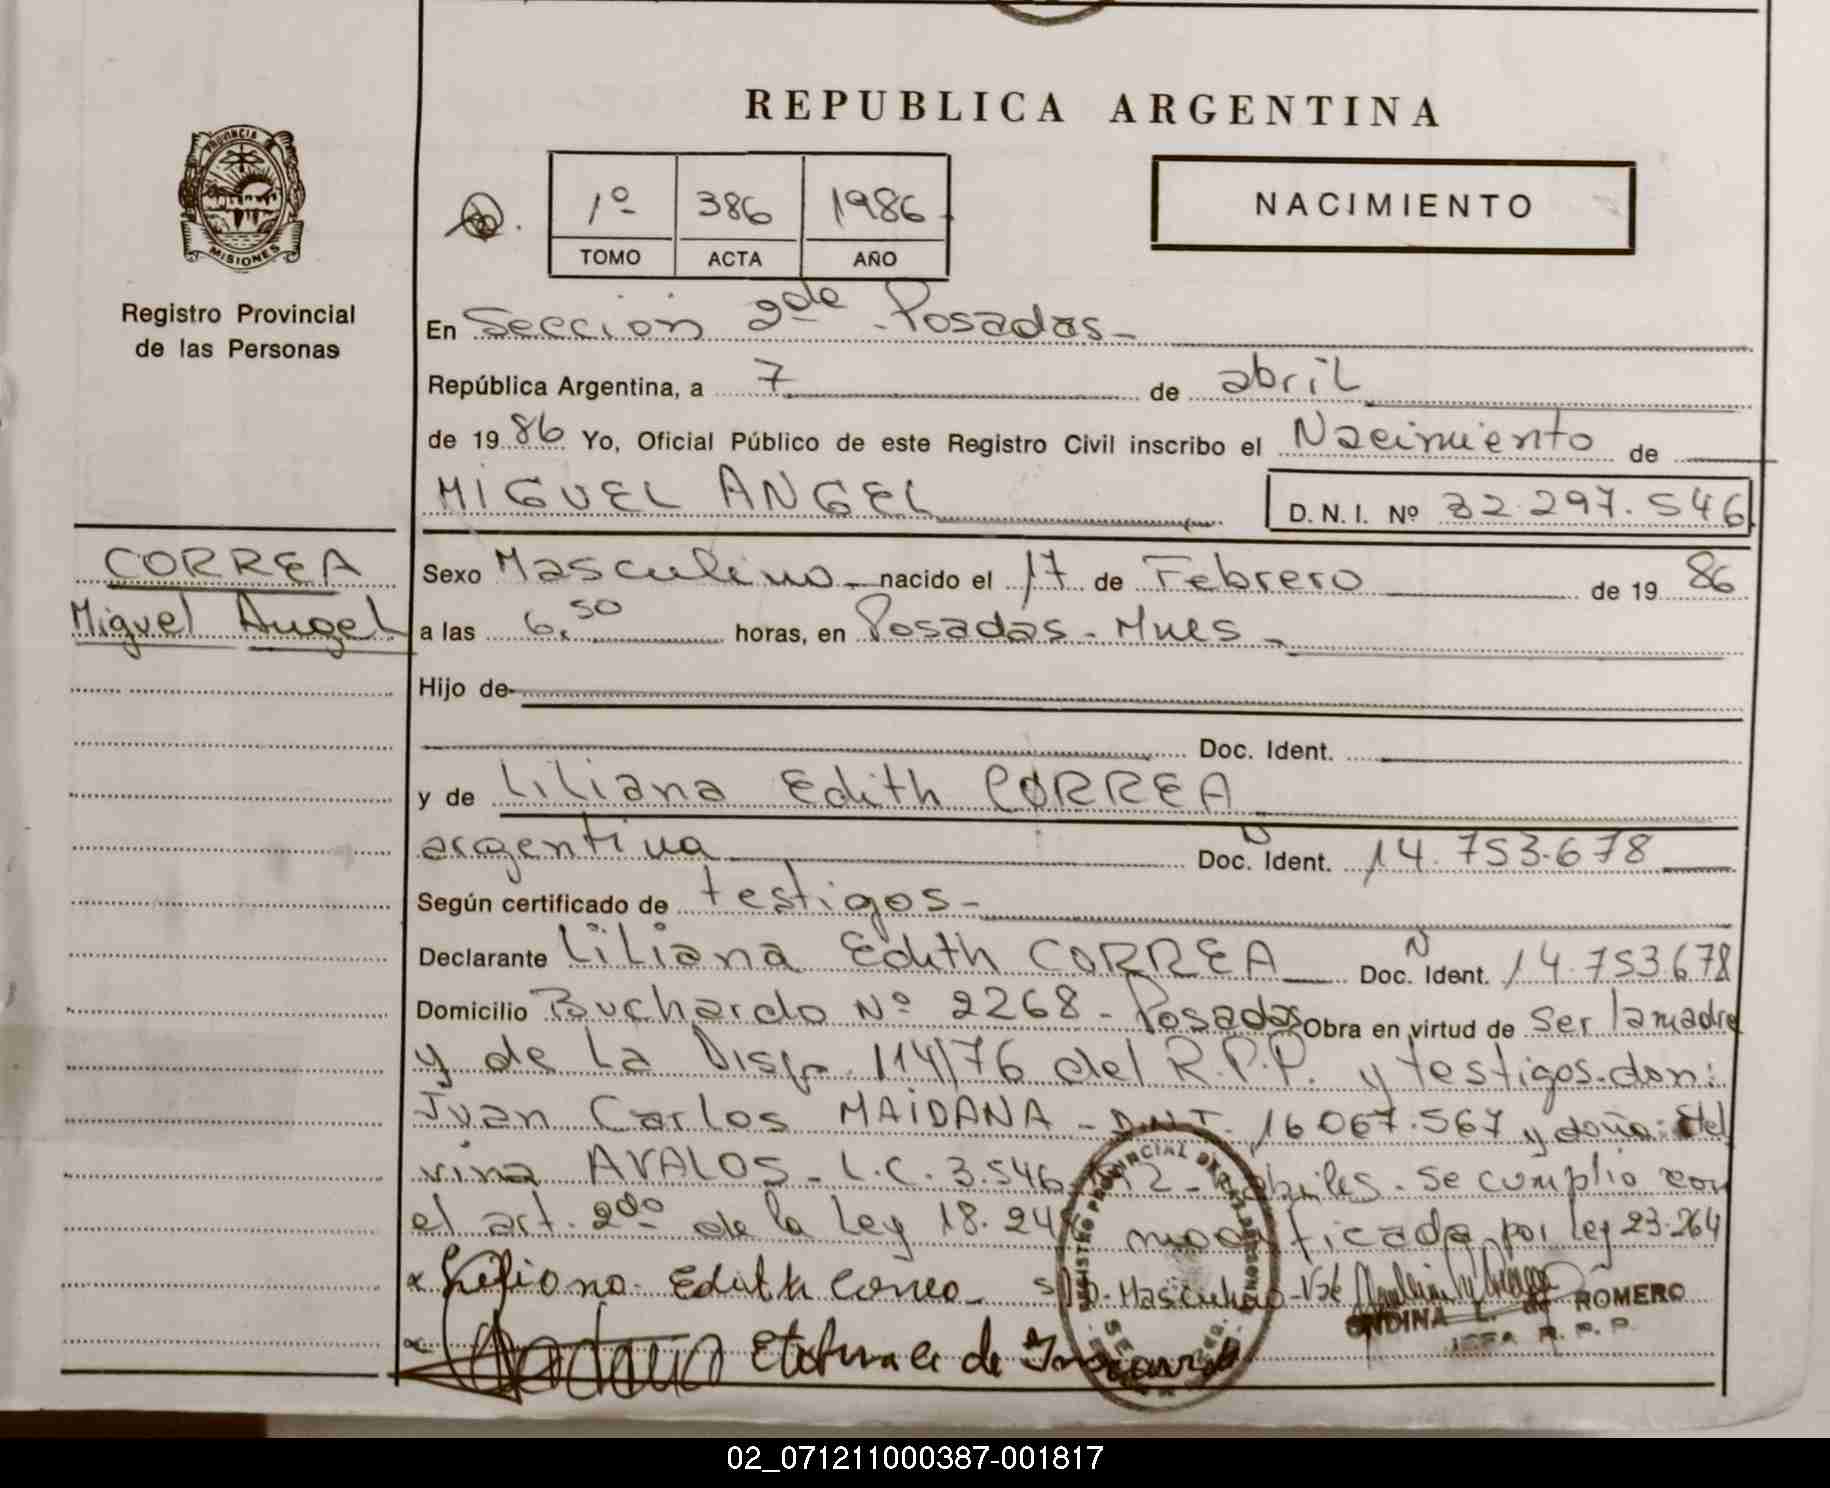 REPUBLICA ARGENTINA
PROVINCIA
MISIONES
Registro Provincial
de las Personas
1º 386 1986
TOMO ACTA AÑO
NACIMIENTO
En Sección 2da Posadas
República Argentina, a 7 de abril
de 1986 Yo, Oficial Público de este Registro Civil inscribo el Nacimiento de
MIGUEL ANGEL D. N. I. Nº 32.297.546
CORREA
Miguel Angel
Sexo Masculino nacido el 17 de Febrero de 1986
a las 6,50 horas, en Posadas - Mnes -
Hijo de
Doc. Ident.
y de Liliana Edith CORREA
argentina Doc. Ident. 14.753.678
Según certificado de testigos -
Declarante Liliana Edith CORREA Doc. Ident. 14.753.678
Domicilio Buchardo Nº 2268 - Posadas Obra en virtud de ser la madre
y de la Disp. 114/76 del R.P.P. y testigos don:
Juan Carlos MAIDANA - D.N.I. 16.067.567 y doña:
AVALOS - L.C. 3.546 hábiles. Se cumplió con
el art. 2do de la Ley 18.24 modificada por ley 23.264
Liliana Edith Correa - Masculino - Vale
ONDINA L. de ROMERO
JEFA R. P. P.
REGISTRO PROVINCIAL DE LAS PERSONAS
02_071211000387-001817